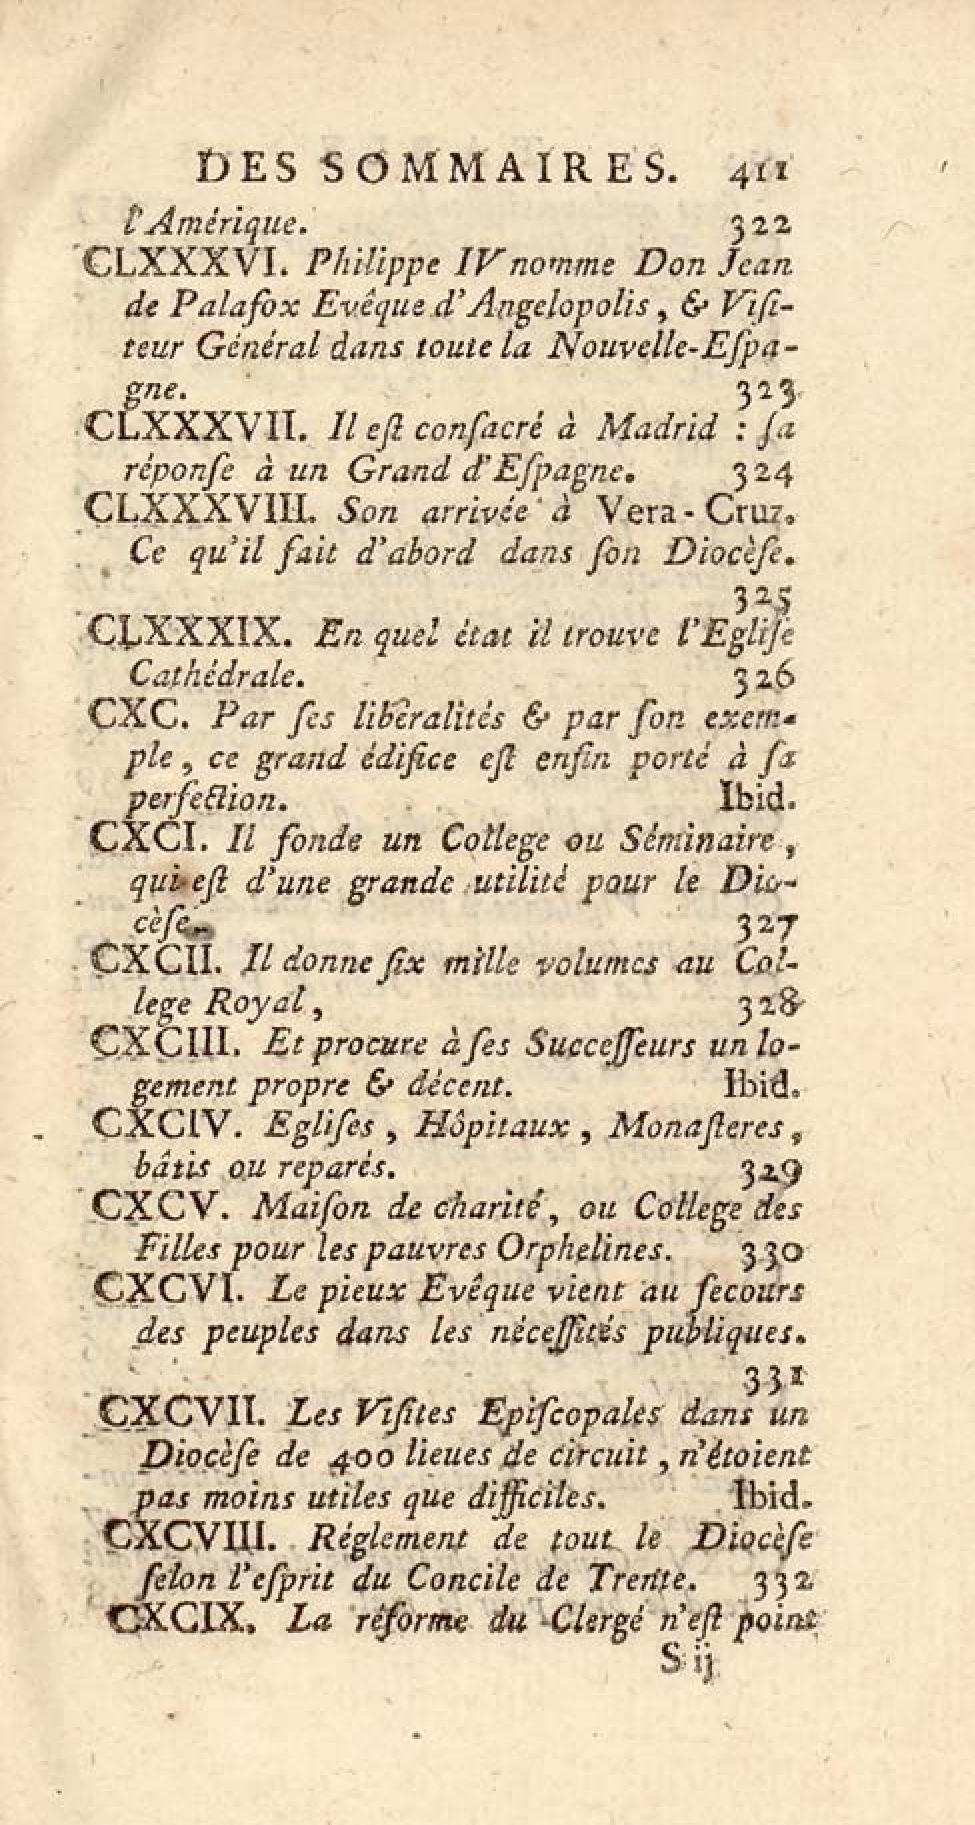 DES SOMMAIRES. 411
l'Amérique. 322
CLXXXVI. Philippe IV nomme Don Jean
de Palafox Evêque d'Angelopolis, & Viſi-
teur Général dans toute la Nouvelle-Eſpa-
gne. 323
CLXXXVII. Il eſt conſacré à Madrid : ſa
réponſe à un Grand d'Eſpagne. 324
CLXXXVIII. Son arrivée à Vera-Cruz.
Ce qu'il fait d'abord dans ſon Diocèſe.
325
CLXXXIX. En quel état il trouve l'Egliſe
Cathédrale. 326
CXC. Par ſes libéralités & par ſon exem-
ple, ce grand édifice eſt enfin porté à ſa
perfection. Ibid.
CXCI. Il fonde un College ou Séminaire,
qui eſt d'une grande utilité pour le Dio-
cèſe. 327
CXCII. Il donne ſix mille volumes au Col-
lege Royal, 328
CXCIII. Et procure à ſes Succeſſeurs un lo-
gement propre & décent. Ibid.
CXCIV. Egliſes, Hôpitaux, Monaſteres,
bâtis ou reparés. 329
CXCV. Maiſon de charité, ou College des
Filles pour les pauvres Orphelines. 330
CXCVI. Le pieux Evêque vient au ſecours
des peuples dans les néceſſités publiques.
331
CXCVII. Les Viſites Epiſcopales dans un
Diocèſe de 400 lieues de circuit, n'étoient
pas moins utiles que difficiles. Ibid.
CXCVIII. Réglement de tout le Diocèſe
ſelon l'eſprit du Concile de Trente. 332
CXCIX. La réforme du Clergé n'eſt point
S ij